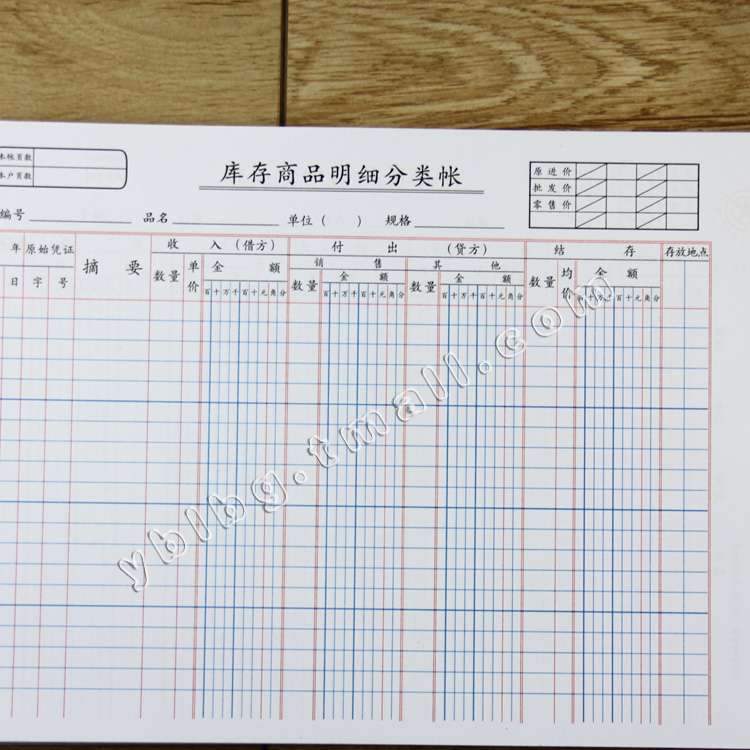 本帐页数
本户页数
库存商品明细分类帐
原进价
批发价
零售价
编号
品名
单位( )
规格
年 原始凭证
日 字 号
摘 要
收 入 (借方)
数量 单价 金 额
百十万千百十元角分
付 出 (贷方)
销 售
数量 金 额
百十万千百十元角分
其 他
数量 金 额
百十万千百十元角分
结 存
数量 均价 金 额
百十万千百十元角分
存放地点
yblbg.tmall.com